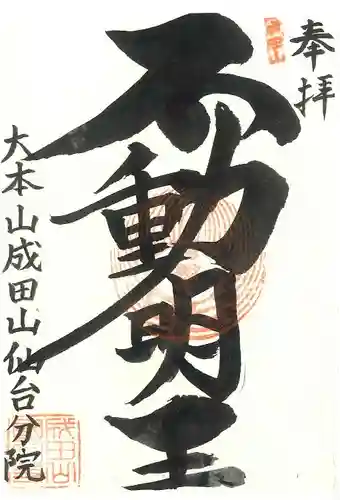 奉拝
不動明王
大本山成田山仙台分院
成田山